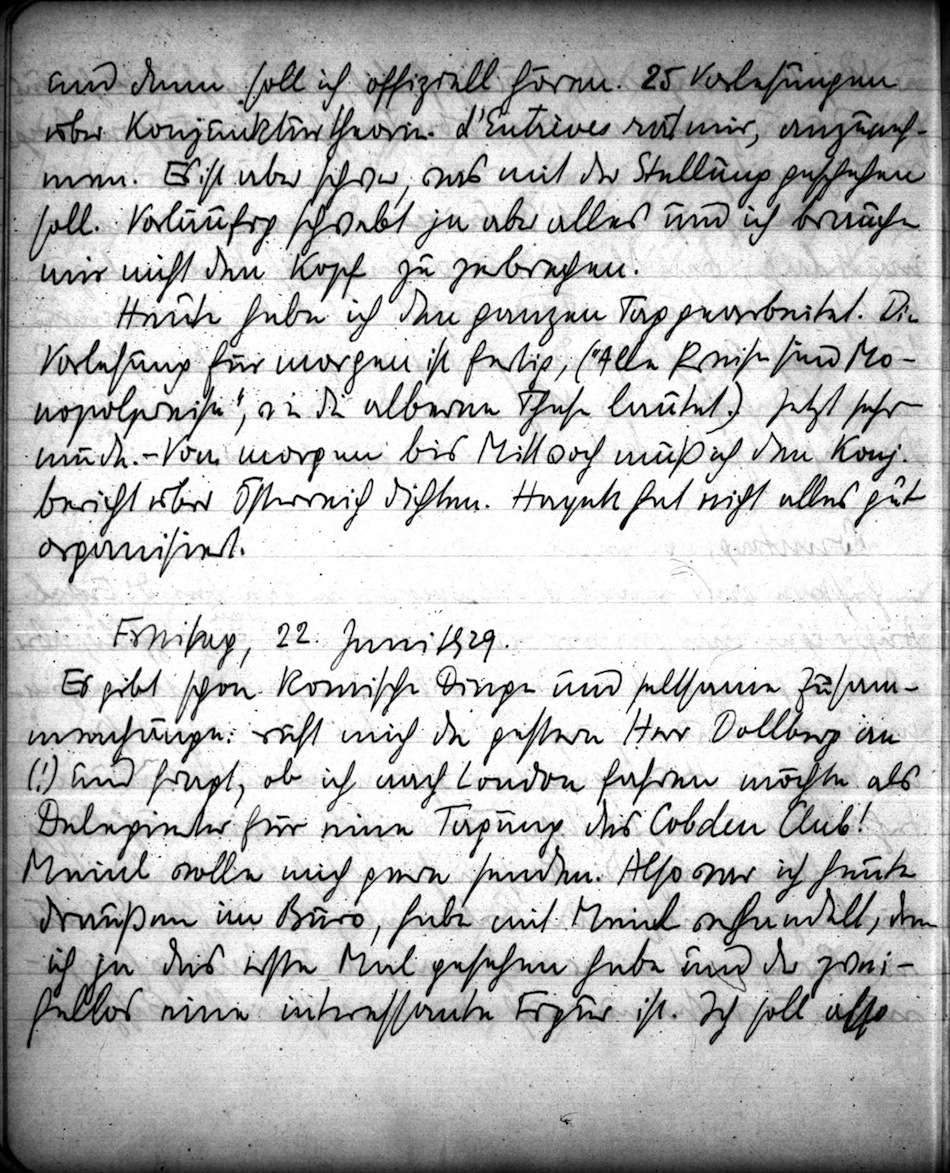 und dann soll ich offiziell hören. 25 Vorlesungen
über Konjunkturtheorie. d'Entrèves rät mir, anzuneh-
men. Es ist aber schwer, was mit der Stellung geschehen
soll. Vorläufig schwebt ja aber alles und ich brauche
mir nicht den Kopf zu zerbrechen.
Heute habe ich den ganzen Tag gearbeitet. Die
Vorlesung für morgen ist fertig, ("Alle Preise sind Mo-
nopolpreise", wie die alberne These lautet.) Jetzt sehr
müde. - Von morgen bis Mittwoch muß ich den Konj.
bericht über Österreich dichten. Hayek hat nicht alles gut
organisiert.
Freitag, 22. Juni 1929.
Es gibt schon komische Dinge und seltsame Zusam-
menhänge: ruft mich da gestern Herr Dollberg an
(!) und fragt, ob ich nach London fahren möchte als
Delegierter für eine Tagung des Cobden Club!
Meinl wolle mich gern senden. Also war ich heute
draußen im Büro, habe mit Meinl verhandelt, den
ich ja das erste Mal gesehen habe und der zwei-
fellos eine interessante Figur ist. Ich soll also